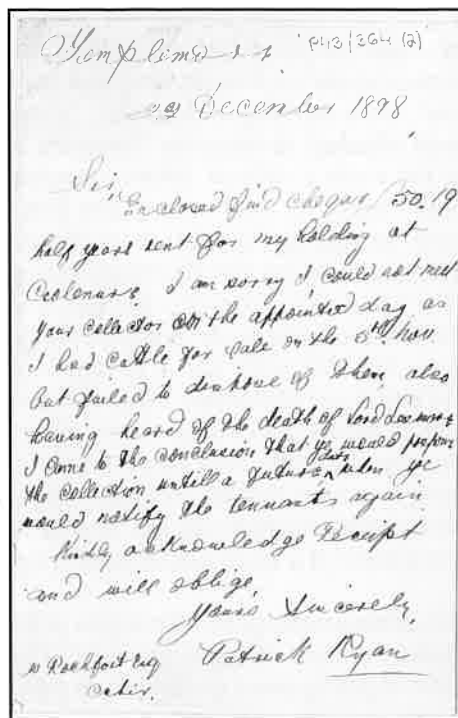 P43/364 (2)
December 1898
Sir,
Enclosed find cheque £50.19
half years rent for my holding at
I am sorry I could not meet
your collector on the appointed day as
I had cattle for sale on the 5th Nov.
but failed to dispose of them, also
having heard of the death of Lord
I came to the conclusion that ye would
the collection untill a future date when ye
would notify the tennants again.
Kindly acknowledge Receipt
and will oblige,
Yours Sincerely,
Patrick Ryan
W Rochfort Esq
Cahir.